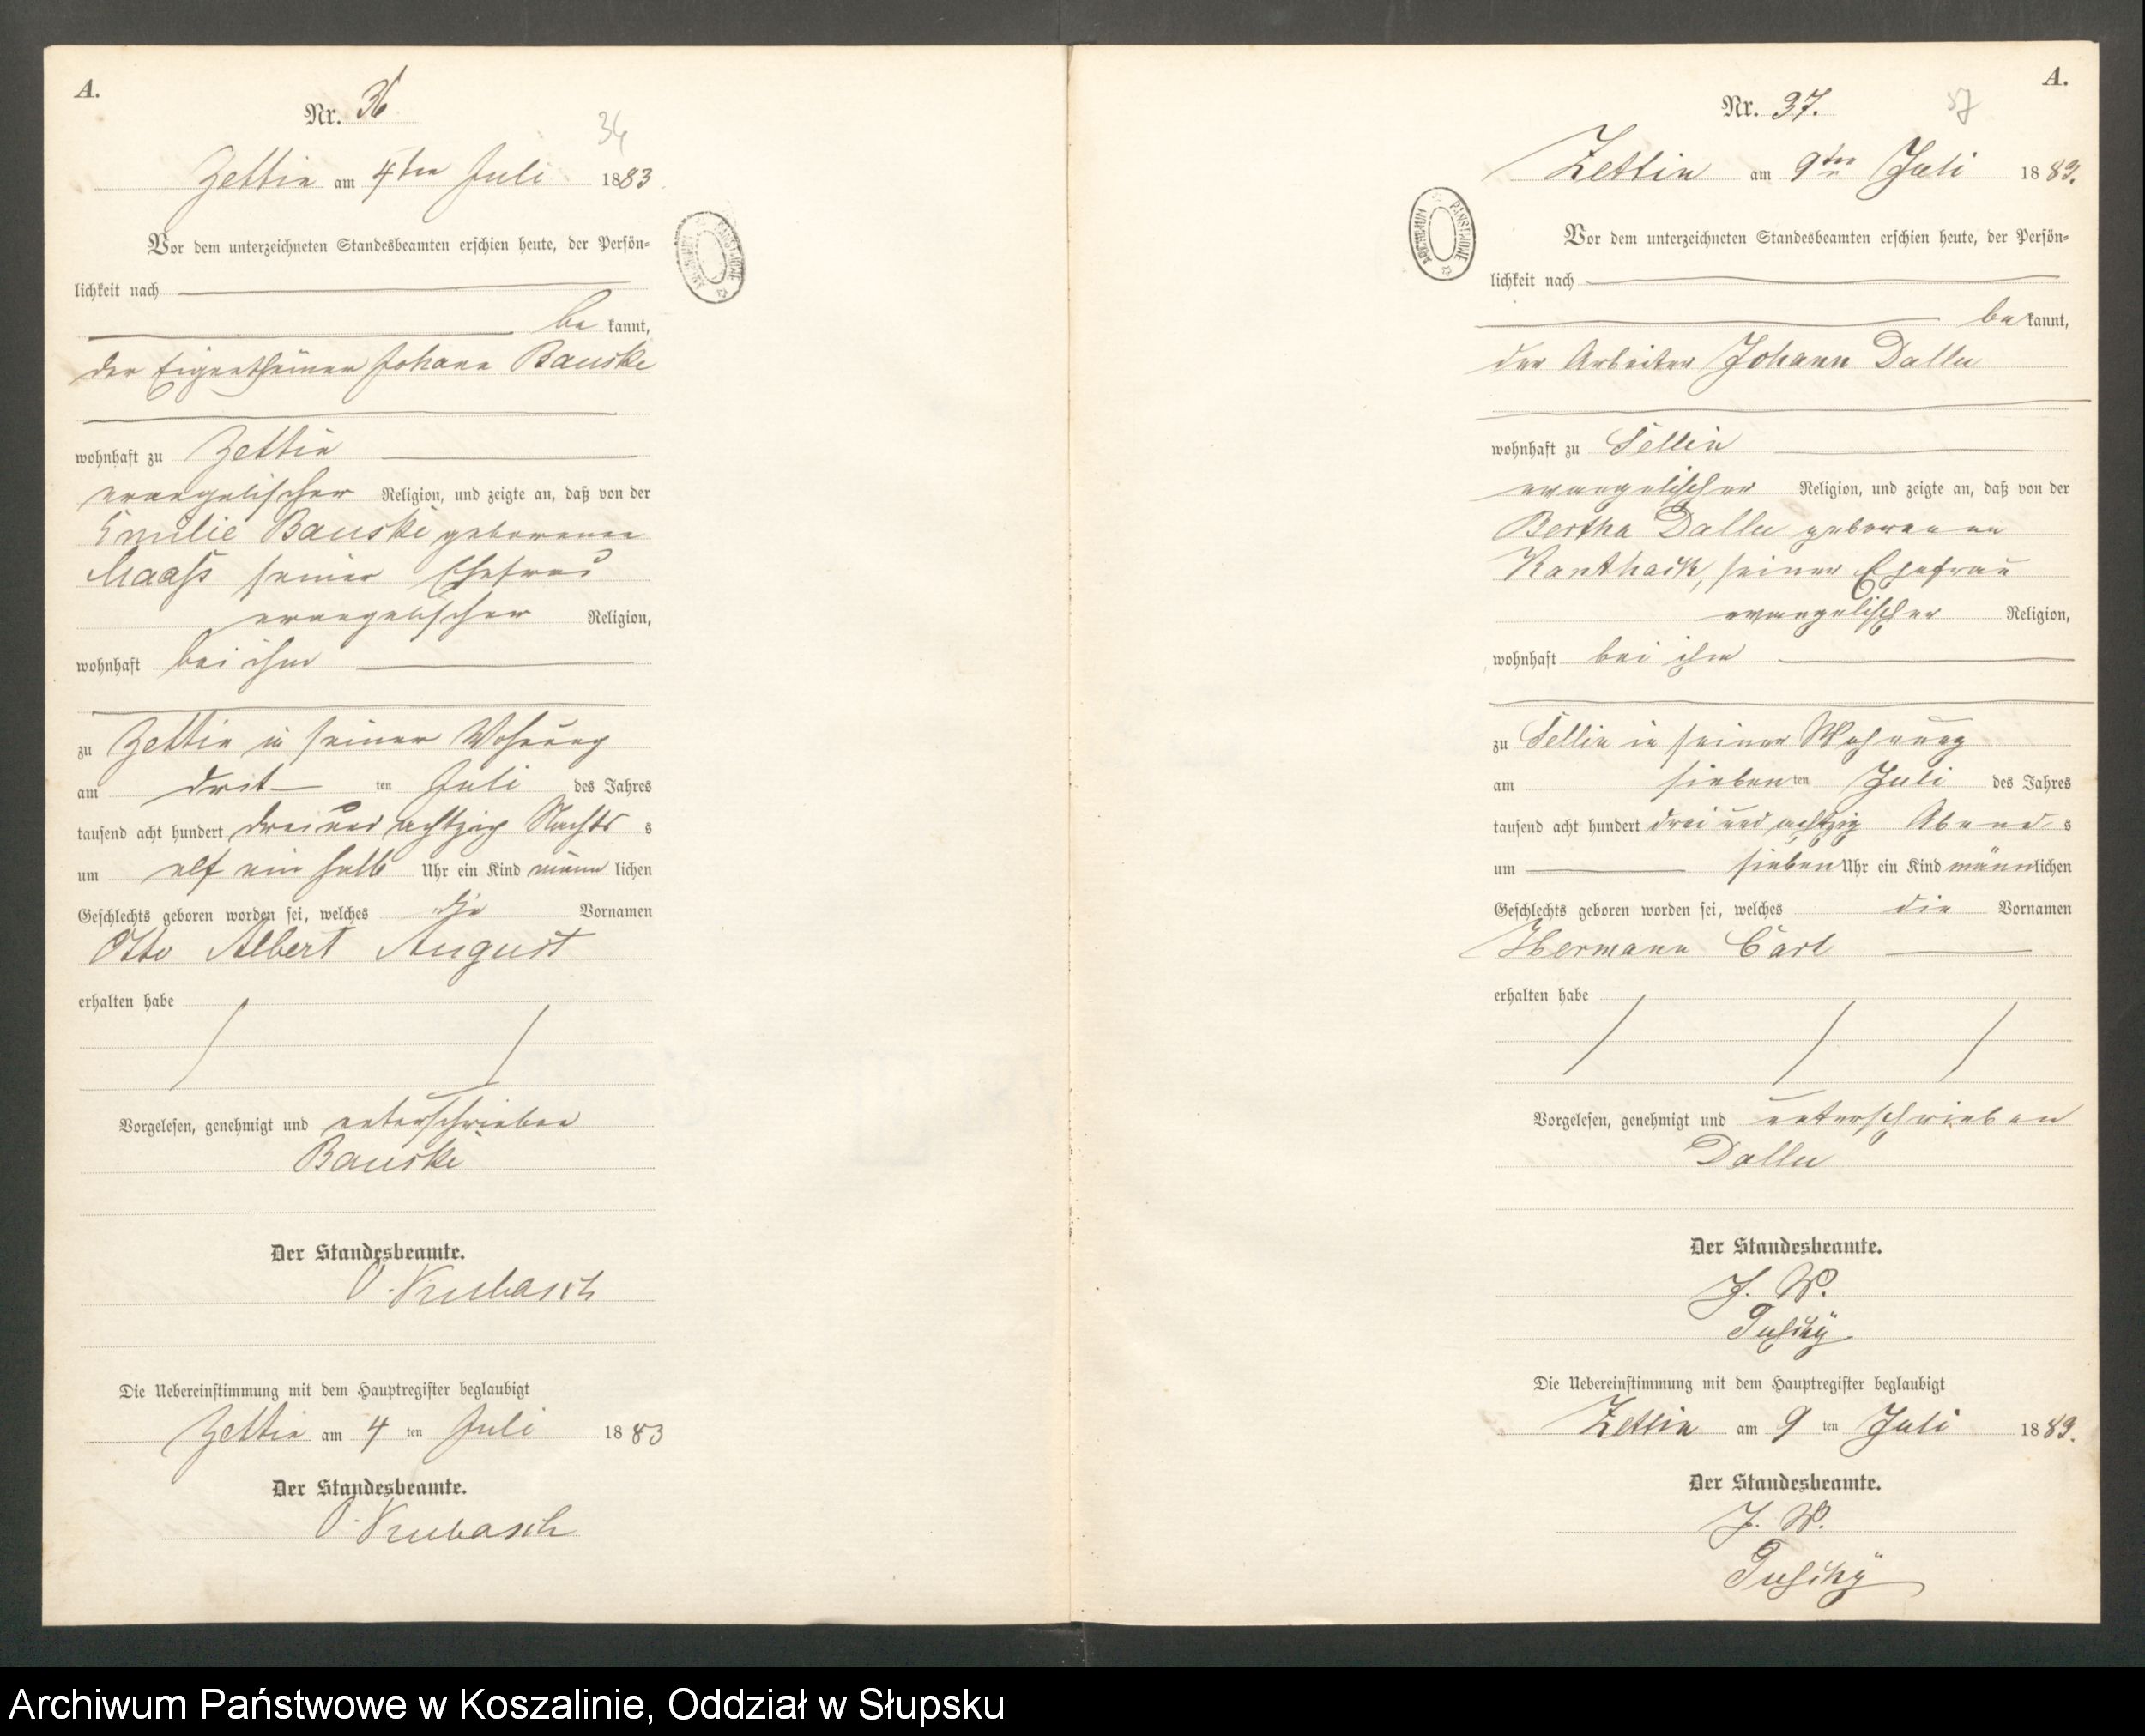 A.
Nr. 36
36
Zettin am 4ten Juli 1883
Vor dem unterzeichneten Standesbeamten erschien heute, der Persön-
lichkeit nach
be kannt,
der Eigenthümer Johann Bauske
wohnhaft zu Zettin
evangelischer Religion, und zeigte an, daß von der
Emilie Bauske geborenen
Maaß seiner Ehefrau
evangelischer Religion,
wohnhaft bei ihm
zu Zettin in seiner Wohnung
am drit ten Juli des Jahres
tausend acht hundert drei und achtzig Nachts s
um elf ein halb Uhr ein Kind männ lichen
Geschlechts geboren worden sei, welches die Vornamen
Otto Albert August
erhalten habe
Vorgelesen, genehmigt und unterschrieben
Bauske
Der Standesbeamte.
O. Krubasch
Die Uebereinstimmung mit dem Hauptregister beglaubigt
Zettin am 4 ten Juli 1883
Der Standesbeamte.
O. Krubasch
A.
Nr. 37.
37
Zettin am 9ten Juli 1883.
ARCHIWUM PAŃSTWOWE
Vor dem unterzeichneten Standesbeamten erschien heute, der Persön-
lichkeit nach
be kannt,
der Arbeiter Johann Dallu
wohnhaft zu Sellin
evangelischer Religion, und zeigte an, daß von der
Bertha Dallu geborenen
Kanthack, seiner Ehefrau
evangelischer Religion,
wohnhaft bei ihm
zu Sellin in seiner Wohnung
am sieben ten Juli des Jahres
tausend acht hundert drei und achtzig Abend s
um sieben Uhr ein Kind männlichen
Geschlechts geboren worden sei, welches die Vornamen
Hermann Carl
erhalten habe
Vorgelesen, genehmigt und unterschrieben
Dallu
Der Standesbeamte.
J. V.
Die Uebereinstimmung mit dem Hauptregister beglaubigt
Zettin am 9 ten Juli 1883.
Der Standesbeamte.
J. V.
Archiwum Państwowe w Koszalinie, Oddział w Słupsku